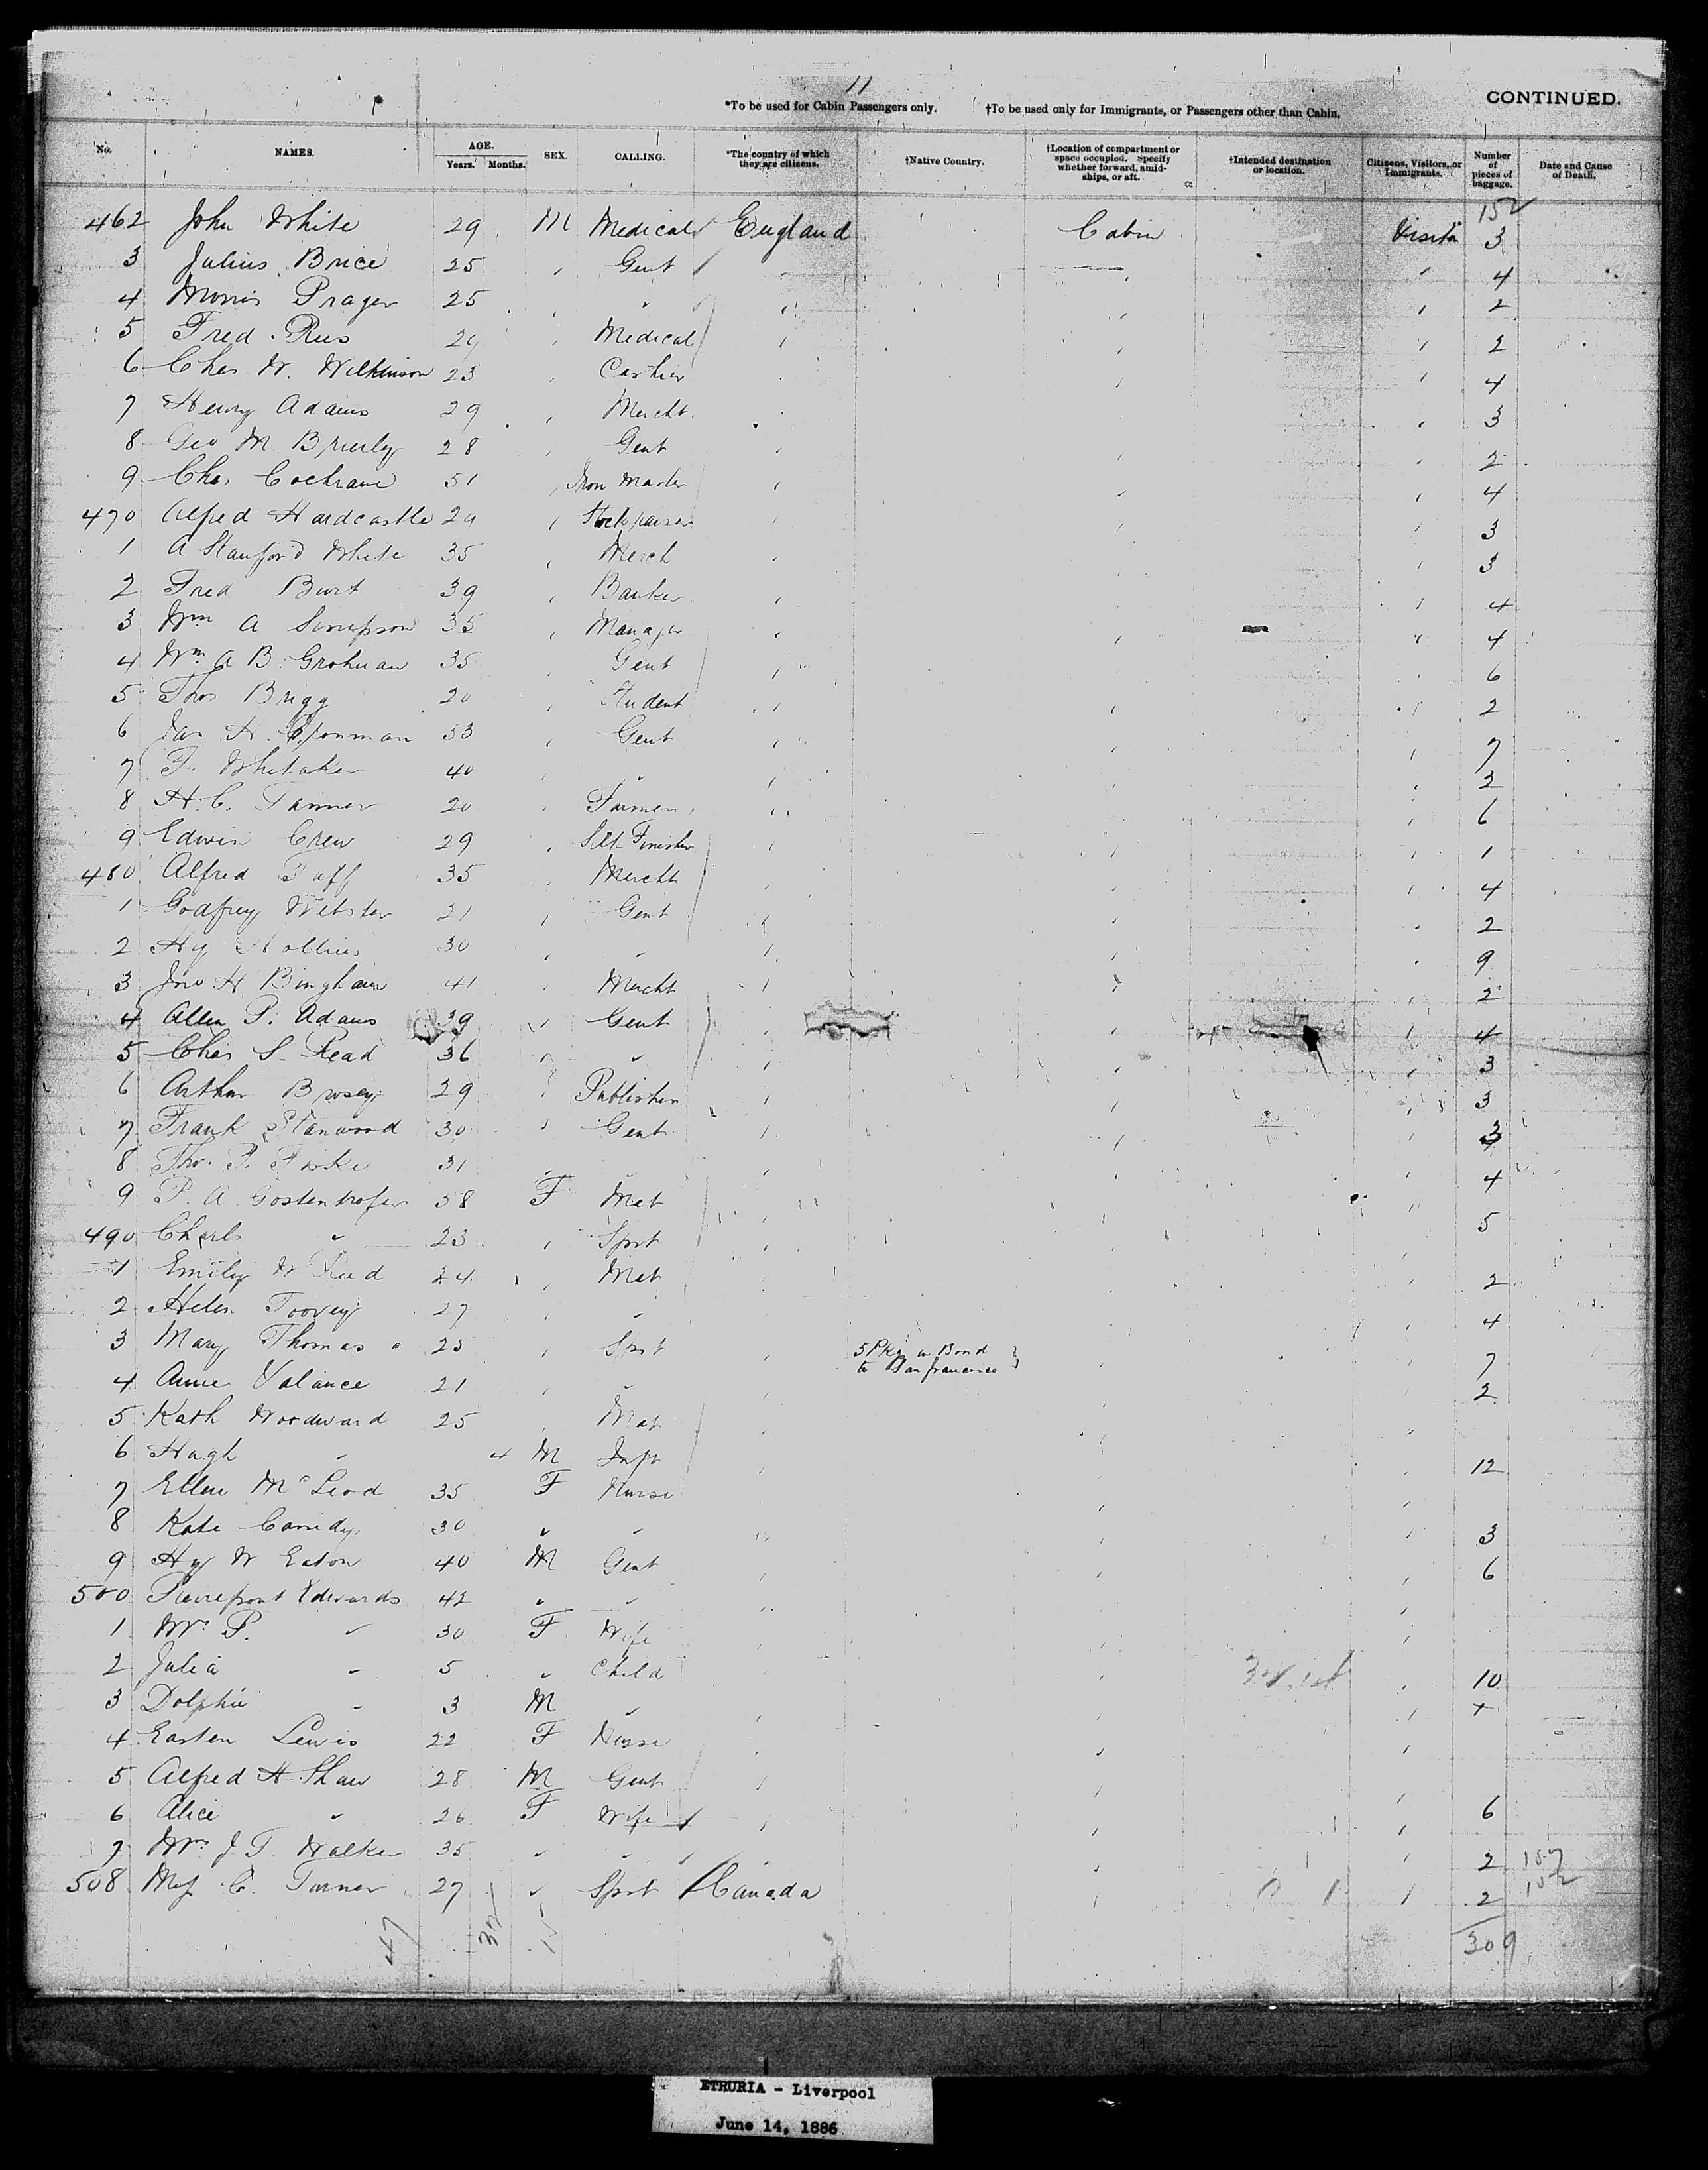 11
*To be used for Cabin Passengers only. †To be used only for Immigrants, or Passengers other than Cabin. CONTINUED.
No. NAMES. AGE. Years. Months. SEX. CALLING. *The country of which they are citizens. †Native Country. †Location of compartment or space occupied. Specify whether forward, amidships, or aft. †Intended destination or location. Citizens, Visitors, or Immigrants. Number of pieces of baggage. Date and Cause of Death.
152
462 John White 29 M Medical England Cabin Visitor 3
3 Julius Brice 25 Gent 4
4 Morris Prager 25 " 2
5 Fred. Rees 29 Medical 2
6 Chas W. Wilkinson 23 Cashier 4
7 Henry Adams 29 Mercht 3
8 Geo M Brierly 28 Gent 2
9 Chas Cochrane 51 Iron Master 4
470 Alfred Hardcastle 29 3
1 A Stanford White 35 Merch 3
2 Fred Burt 39 Banker 4
3 Wm A Simpson 35 Manager 4
4 Wm A B. Grohman 35 Gent 6
5 Thos Brigg 20 Student 2
6 Jas H. 33 Gent 7
7 F. Whitaker 40 " 2
8 H. C. Tanner 20 Farmer 6
9 Edwin Crew 29 Silk Finisher 1
480 Alfred Taff 35 Mercht 4
1 Godfrey Webster 21 Gent 2
2 Hy Hollins 30 " 9
3 Jno H Bingham 41 Mercht 2
4 Allen P. Adams 39 Gent 4
5 Chas S. Read 36 " 3
6 Arthur Boosey 29 Publisher 3
7 Frank Stanwood 30 Gent 3
8 Tho. P. 31 " 4
9 P. A Gostenhofer 58 F Mat
490 Charl " 23 Spst 5
1 Emily W Reed 24 Mat 2
2 Helen Toovey 27 " 4
3 Mary Thomas 25 Spst 5 Pkg in Bond 7
to San francisco
4 Annie Valance 21 " 2
5 Kath Woodward 25 Mat
6 Hugh " 4 M Inft 12
7 Ellen McLeod 35 F Nurse
8 Kate Cassidy 30 " " 3
9 Hy W Eaton 40 M Gent 6
500 Pierrepont Edwards 42 " "
1 Mrs P. " 30 F Wife
2 Julia " 5 " Child 10
3 Dolphie " 3 M " +
4 Easten Lewis 22 F Nurse
5 Alfred H. Shaw 28 M Gent
6 Alice " 26 F Wife 6
7 Mrs J T. Walker 35 " " 2 157
508 Miss C. Turner 27 " Spst Canada 2 152
47 32 15 309
ETRURIA - Liverpool
June 14, 1886